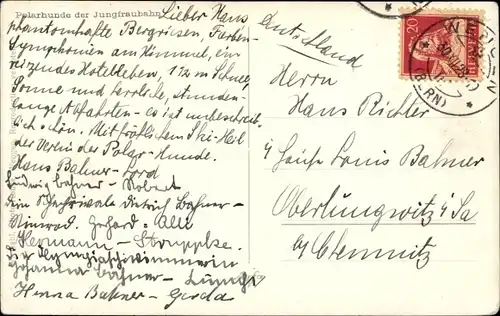 Polarhunde der Jungfraubahn
Lieber Hans
phantomhafte Bergriesen, Farben-
Symphonien am Himmel, ein
reizendes Hotelleben, 1½ m Schnee,
Sonne und herrliche, stunden-
lange Abfahrten - es ist unbeschreib-
lich schön. Mit fröhlichem Ski-Heil
der Verein der Polar-Hunde.
Hans Bahner - Lord
Ludwig Bahner - Nobel
Dietrich Bahner -
Nimrod. Gerhard - Alli
Hermann - Struppke.
Die Olympiaschwimmerin
Johanna Bahner -
Henna Bahner - Gerda
Deutschland
Herrn
Hans Richter
Louis Bahner
Oberlungwitz i/Sa
b/ Chemnitz
20
HELVETIA
WENGEN
(BERN)